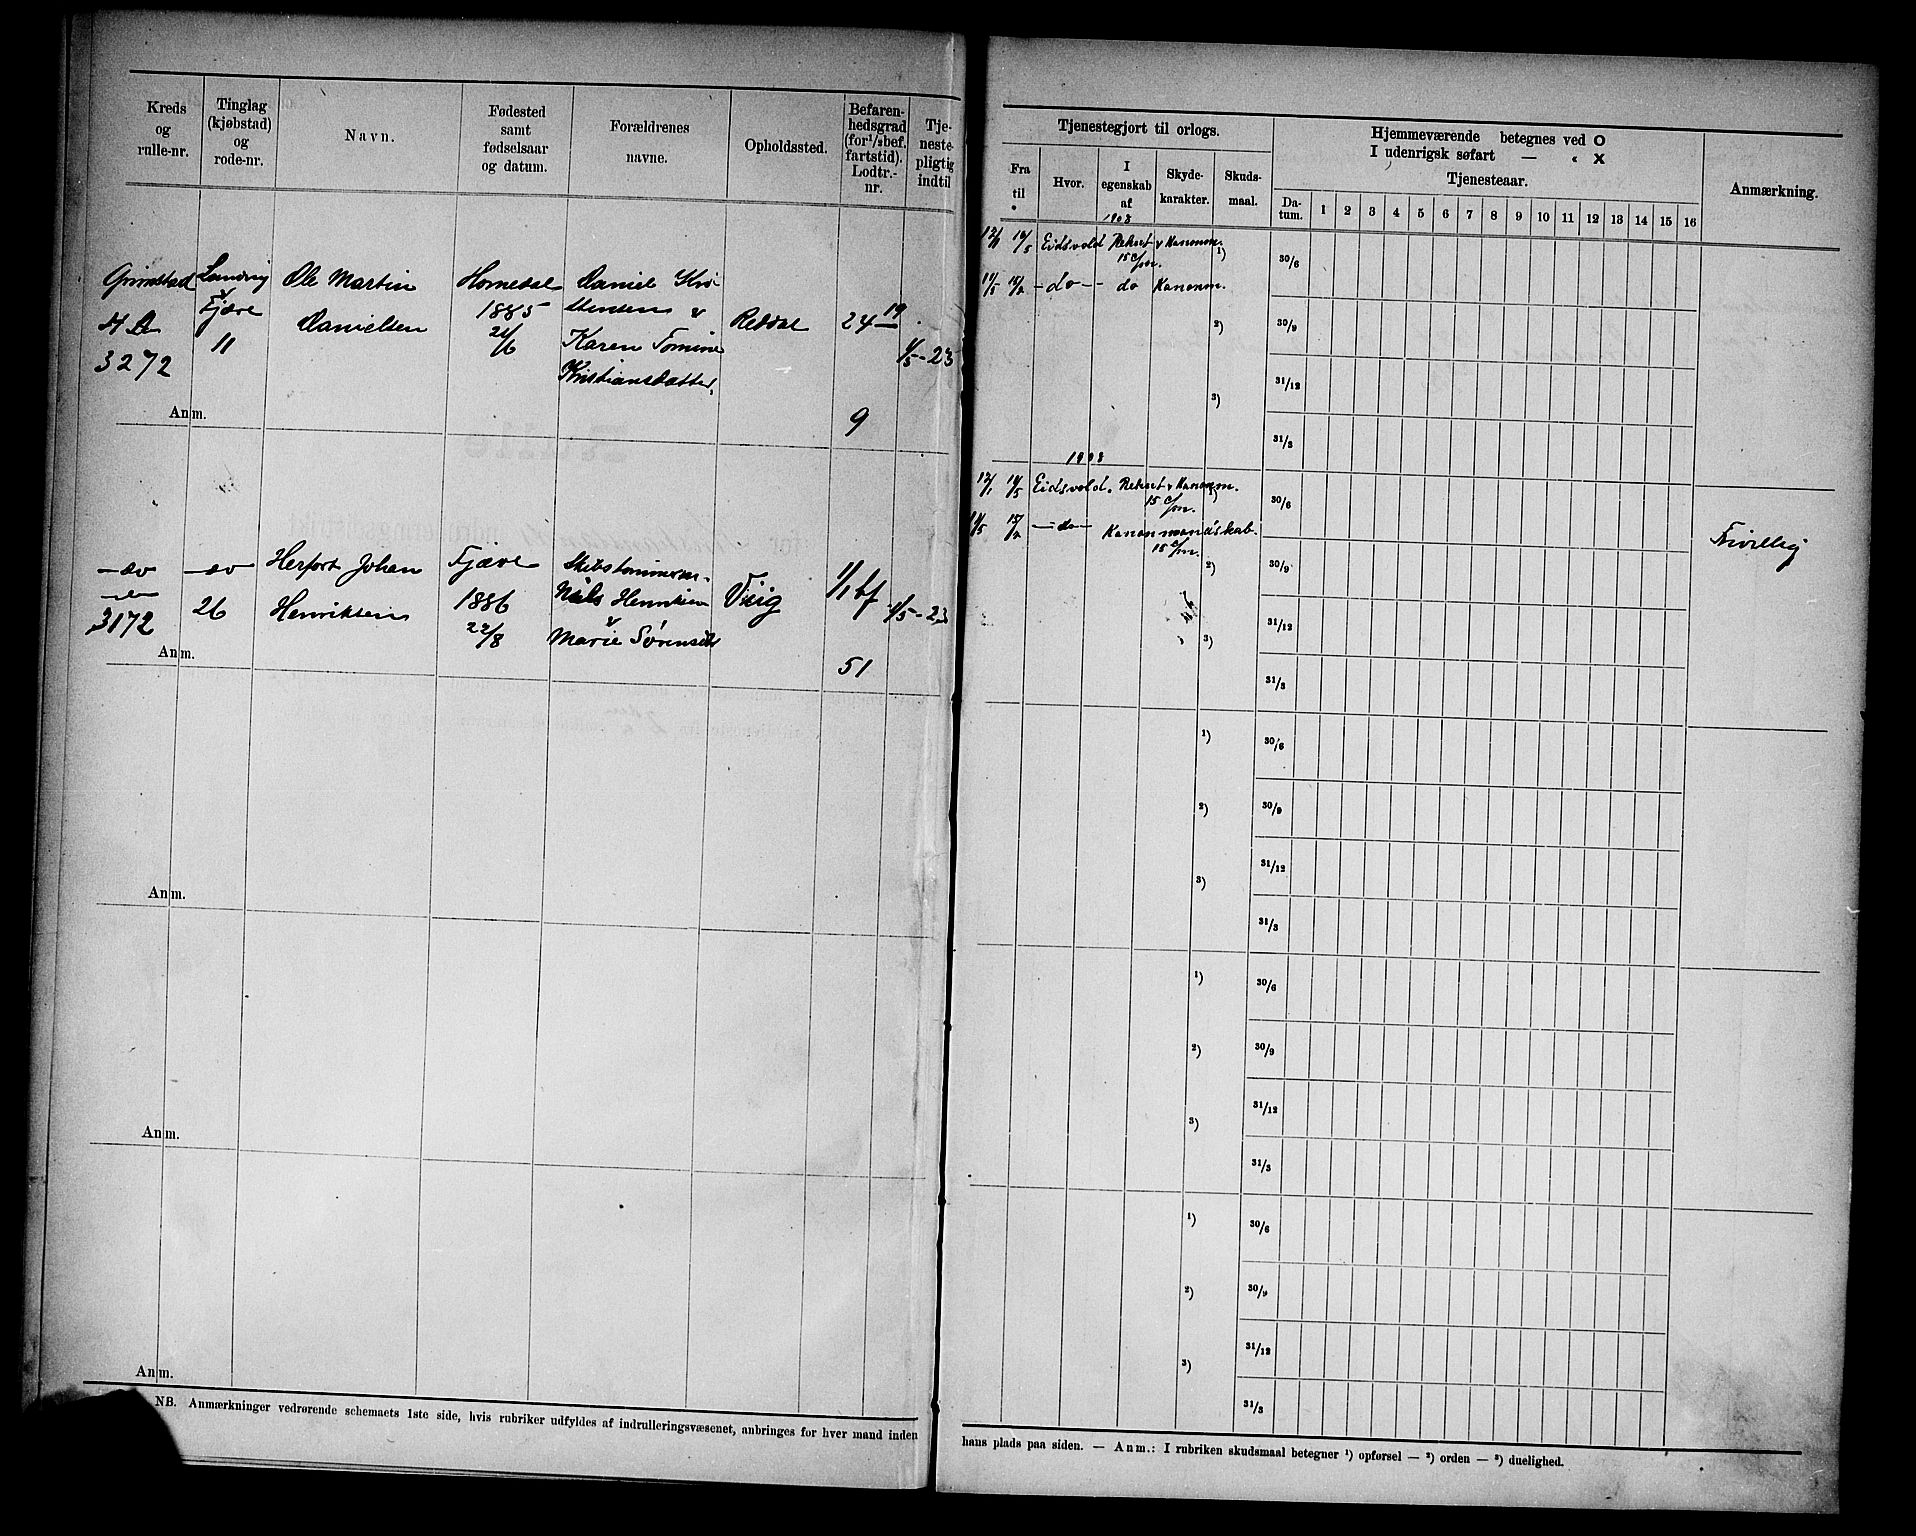 Kreds
og
rulle-nr.
Tinglag
(kjøbstad)
og
rode-nr.
Navn.
Fødested
samt
fødselsaar
og datum.
Forældrenes
navne.
Opholdssted.
Befaren-
hedsgrad
(for 1/2 bef.
fartstid).
Lodtr.-
nr.
Tje-
neste-
pligtig
indtil
Grimstad
3272
Landvig
v
Fjære
11
Ole Martin
Danielsen
Homedal
1885
24/6
Daniel Kri-
stensen v
Karen Tomine
Kristiansdatter,
Reddal
24 19
9
1/5-23
Anm.
3172
26
Herfort Johan
Henriksen
Fjære
1886
22/8
Skibstømmerm.
Niels Henriksen
v
Marie Sørensdtr
Vig
1/1 bf
51
1/5-23
Anm.
Anm.
Anm.
Anm.
NB. Anmærkninger vedrørende schemaets 1ste side, hvis rubriker udfyldes af indrulleringsvæsenet, anbringes for hver mand inden
Tjenestegjort til orlogs.
Fra
til
Hvor.
I
egenskab
af
Skyde-
karakter.
Skuds-
maal.
Hjemmeværende betegnes ved O
I udenrigsk søfart — " X
Tjenesteaar.
Da-
tum.
1 2 3 4 5 6 7 8 9 10 11 12 13 14 15 16
Anmærkning.
1908
12/1 10/5 Eidsvold Rekrut v Kanonm.
15 c/m.
11/5 15/2 — do — do Kanonm.
1)
2)
3)
30/6
30/9
31/12
31/3
1908
12/1 10/5 Eidsvold. Rekrut v Kanonm.
15 c/m.
11/5 15/2 — do — Kanonmandskab.
15 c/m.
1)
2)
3)
30/6
30/9
31/12
31/3
Frivillig
1)
2)
3)
30/6
30/9
31/12
31/3
1)
2)
3)
30/6
30/9
31/12
31/3
1)
2)
3)
30/6
30/9
31/12
31/3
hans plads paa siden. — Anm.: I rubriken skudsmaal betegner 1) opførsel — 2) orden — 3) duelighed.